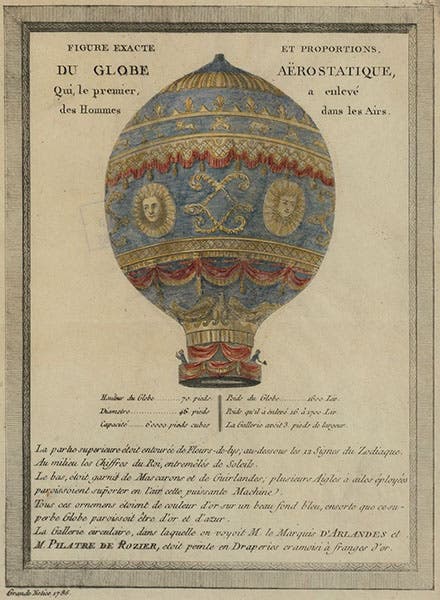 FIGURE EXACTE ET PROPORTIONS,
DU GLOBE AËROSTATIQUE,
Qui, le premier, a enlevé
des Hommes dans les Airs.
Hauteur du Globe 70 pieds Poids du Globe 1600 Liv.
Diametre 46 pieds Poids qu'il à enlevé 16 à 1700 Liv.
Capacité 60000 pieds cubes La Gallerie avoit 3 pieds de largeur.
La partie superieure étoit entourée de Fleurs-de-lys, au-dessous les 12 Signes du Zodiaque.
Au milieu les Chiffres du Roi, entremêlés de Soleils.
Le bas, étoit garni de Mascarons et de Guirlandes, plusieurs Aigles à ailes éployées
paroissoient suporter en l'air cette puissante Machine.
Tous ces ornemens étoient de couleur d'or sur un beau fond bleu, ensorte que ce su-
perbe Globe paroissoit être d'or et d'azur.
La Gallerie circulaire, dans laquelle on voyoit M. le Marquis D'ARLANDES et
M. PILATRE DE ROZIER, étoit peinte en Draperies cramoisi à franges d'or.
1786